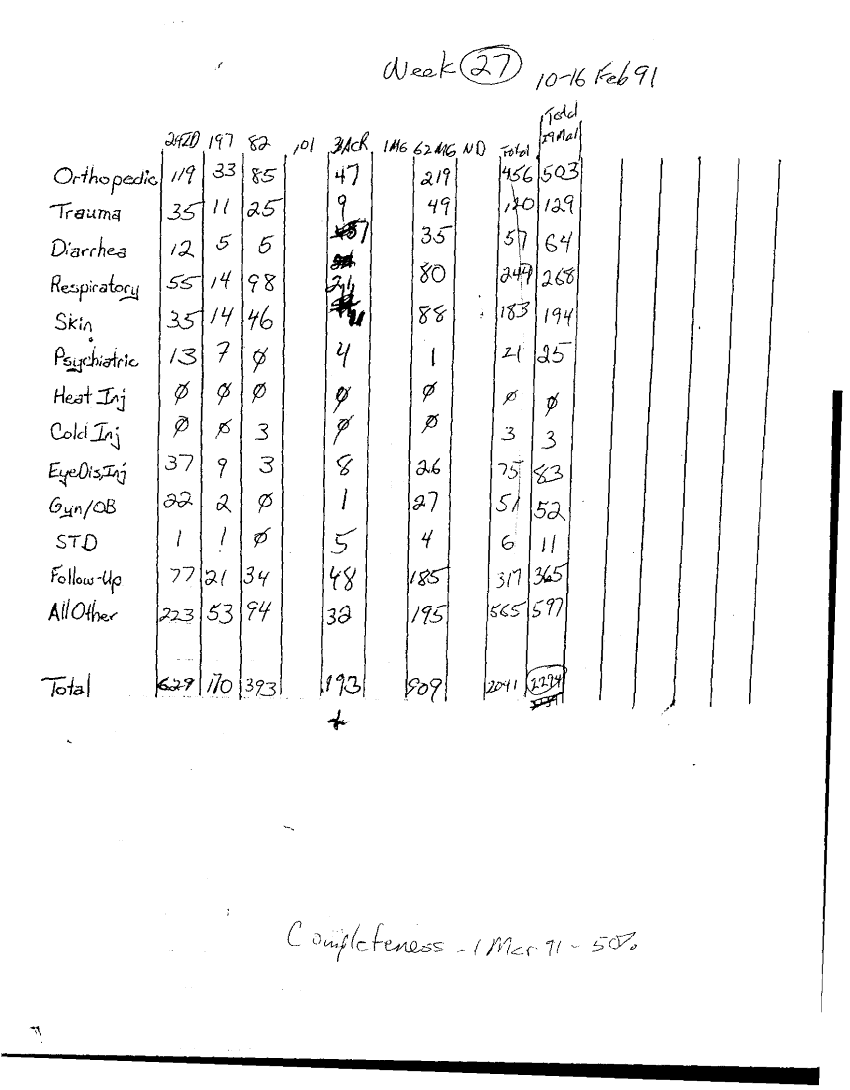 Week 27 10-16 Feb 91
Total
24ID 197 82 101 3ACR 1MG 62MG ND Total 29Mar
Orthopedic 119 33 85 47 219 456 503
Trauma 35 11 25 9 49 120 129
Diarrhea 12 5 5 7 35 57 64
Respiratory 55 14 98 24 80 244 268
Skin 35 14 46 11 88 183 194
Psychiatric 13 7 Ø 4 1 21 25
Heat Inj Ø Ø Ø Ø Ø Ø Ø
Cold Inj Ø Ø 3 Ø Ø 3 3
EyeDis,Inj 37 9 3 8 26 75 83
Gyn/OB 22 2 Ø 1 27 51 52
STD 1 1 Ø 5 4 6 11
Follow-Up 77 21 34 48 185 317 365
All Other 223 53 94 32 195 565 597
Total 629 170 393 193 909 2041 2234
Completeness - 1 Mar 91 - 50%